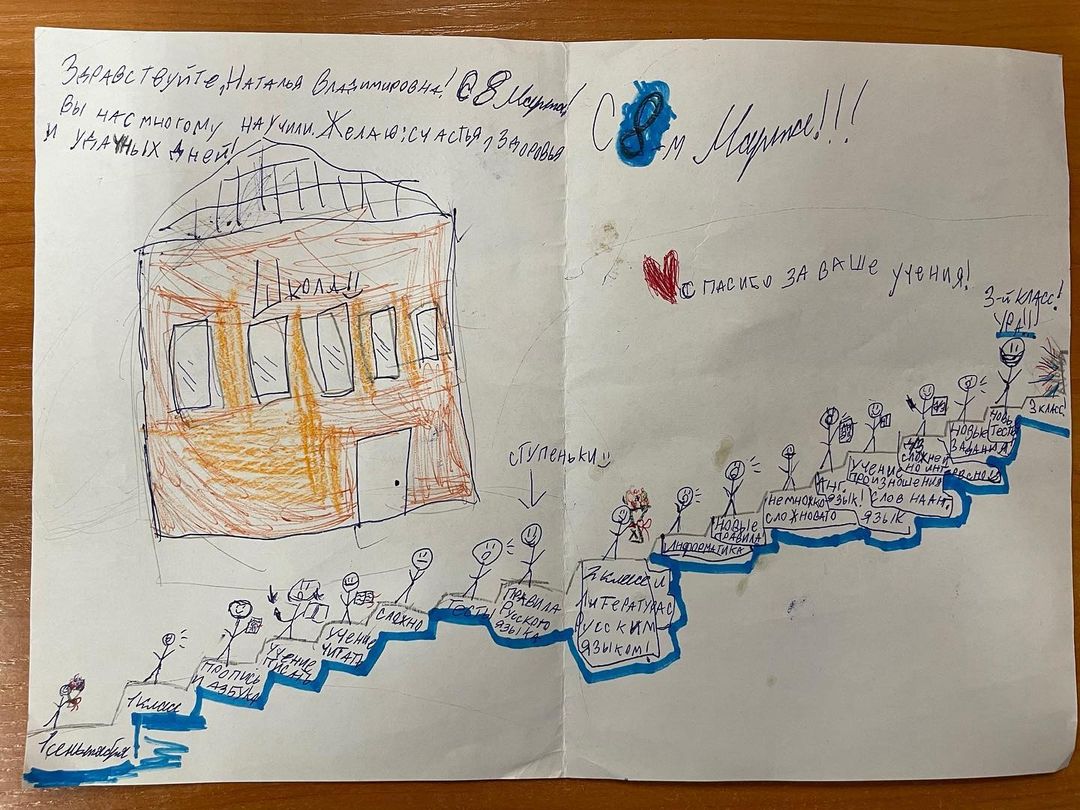 Здравствуйте, Наталья Владимировна! С 8 Марта!
Вы нас многому научили. Желаю: счастья, здоровья
и удачных дней!
Школа!!
С 8-м Марта!!!
Спасибо за ваше учения!
3-й класс!
Ура!!
ступеньки
1 сеньтября
1 класс
Пропись
и азбука
учение
писать
учение
читать
сложно
тесты
правила
русского
языка
2 класс и
литература с
русским
языком!
информатика
новые
правила
немножко
сложновато
Анг.
язык!
учение
произношения
слов на ан.
язык
сложней
но инт
ересно!!
новые
задания
новы
тесты
3 класс